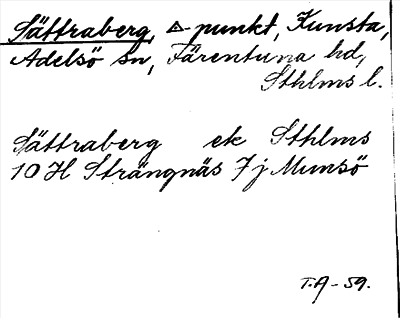 Sättraberg, △-punkt, Kunsta,
Adelsö sn, Färentuna hd,
Sthlms l.
Sättraberg ek Sthlms
10 H Strängnäs 7 j Munsö
T.A-59.